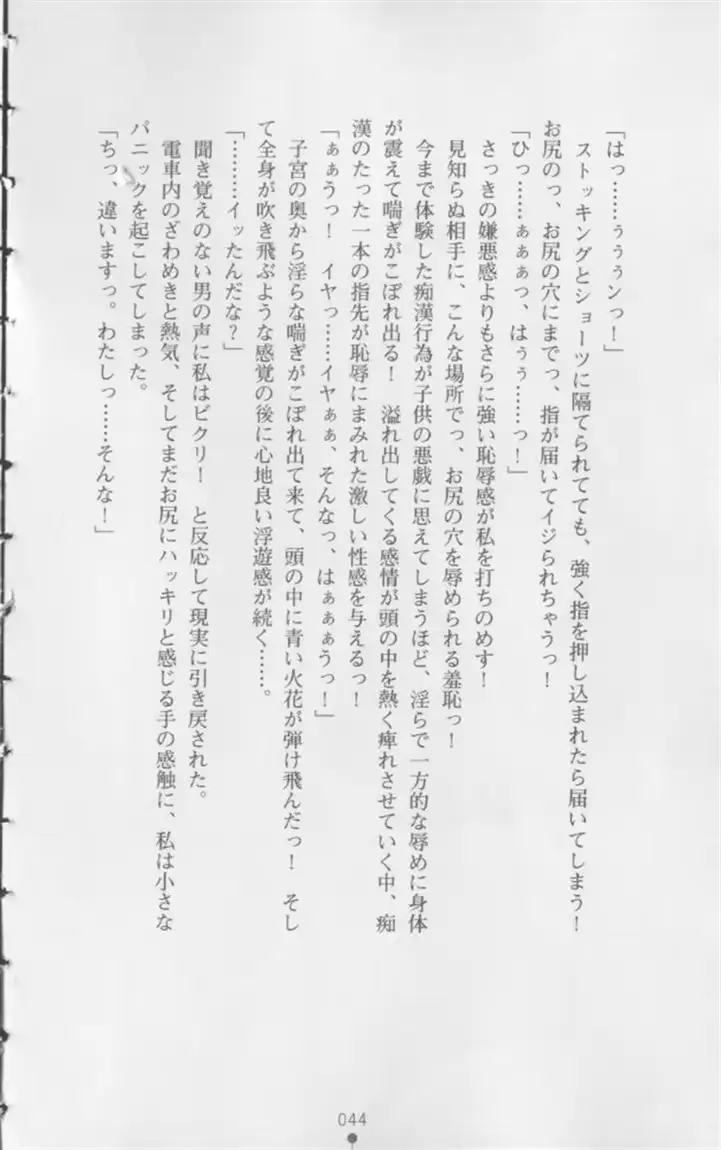 「はっ……ぅぅぅンっ！」
ストッキングとショーツに隔てられてても、強く指を押し込まれたら届いてしまう！
お尻のっ、お尻の穴にまでっ、指が届いてイジられちゃうっ！
「ひっ……ぁぁぁっ、はぅぅ……っ！」
さっきの嫌悪感よりもさらに強い恥辱感が私を打ちのめす！
見知らぬ相手に、こんな場所でっ、お尻の穴を辱められる羞恥っ！
今まで体験した痴漢行為が子供の悪戯に思えてしまうほど、淫らで一方的な辱めに身体
が震えて喘ぎがこぼれ出る！　溢れ出してくる感情が頭の中を熱く痺れさせていく中、痴
漢のたった一本の指先が恥辱にまみれた激しい性感を与えるっ！
「ぁぁうっ！　イヤっ……イヤぁぁ、そんなっ、はぁぁぁうっ！」
子宮の奥から淫らな喘ぎがこぼれ出て来て、頭の中に青い火花が弾け飛んだっ！　そし
て全身が吹き飛ぶような感覚の後に心地良い浮遊感が続く……。
「………イッたんだな？」
聞き覚えのない男の声に私はビクリ！　と反応して現実に引き戻された。
電車内のざわめきと熱気、そしてまだお尻にハッキリと感じる手の感触に、私は小さな
パニックを起こしてしまった。
「ちっ、違いますっ。わたしっ……そんな！」
044